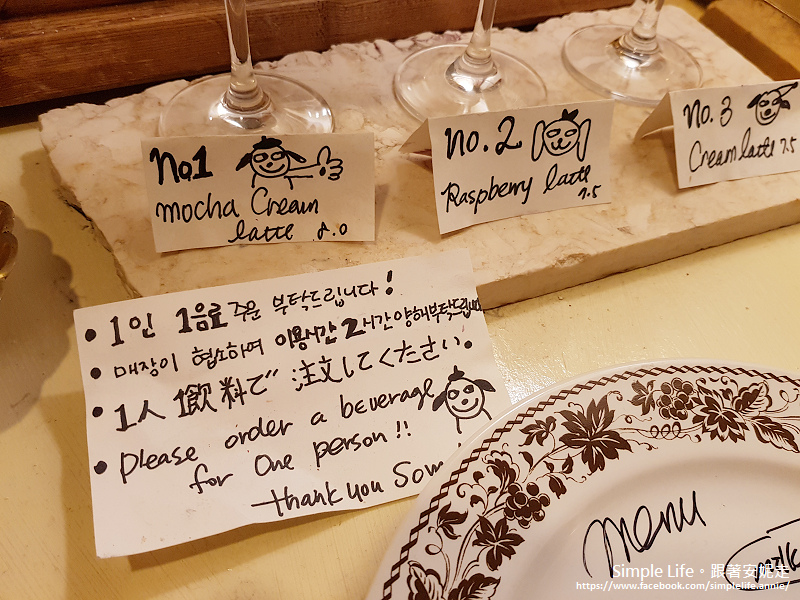 no1
mocha Cream
latte 8.0
no.2
Raspberry latte
7.5
no.3
Cream latte 7.5
• 1인 1음료 주문 부탁드립니다!
• 매장이 협소하여 이용시간 2시간 양해부탁드립니다
• 1人 1飲料で 注文してください。
• please order a beverage
for one person!!
thank you
menu
Simple Life。跟著安妮走
https://www.facebook.com/simplelife.annie/